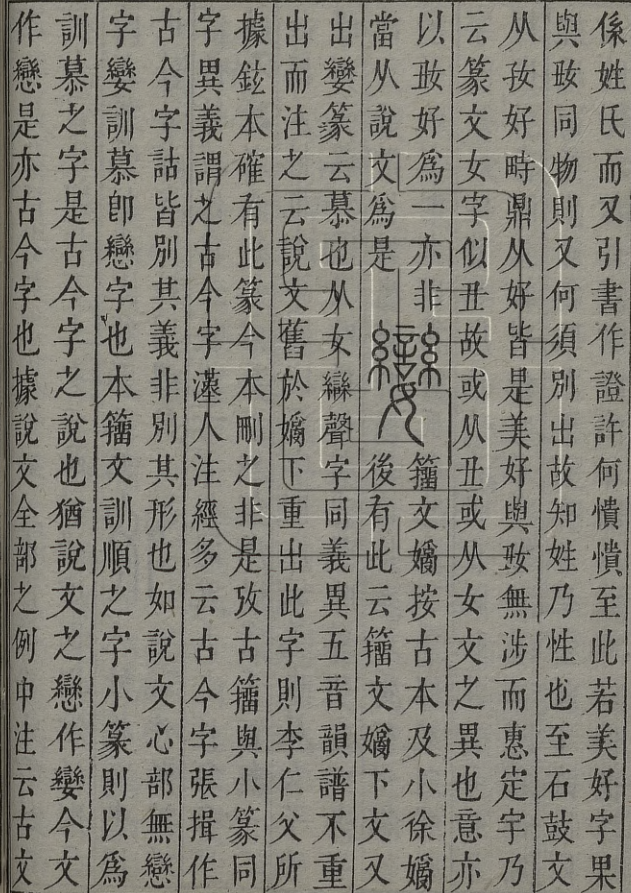 係姓氏而又引書作證許何憒憒至此若美好字果
與㚼同物則又何須別出故知姓乃性也至石鼓文
从孜好時鼎从好皆是美好與㚼無涉而惠定宇乃
云篆文女字似丑故或从丑或从女文之異也意亦
以㚼好爲一亦非
當从說文爲是
孌
籀文𡡗按古本及小徐𡡗
後有此云籀文𡡗下文又
出孌篆云慕也从女䜌聲字同義異五音韻譜不重
出而注之云說文舊於𡡗下重出此字則李仁父所
據鉉本確有此篆今本刪之非是攷古籀與小篆同
字異義謂之古今字漢人注經多云古今字張揖作
古今字詁皆別其義非別其形也如說文心部無戀
字孌訓慕卽戀字也本籀文訓順之字小篆則以爲
訓慕之字是古今字之說也猶說文之戀作孌今文
作戀是亦古今字也據說文全部之例中注云古文